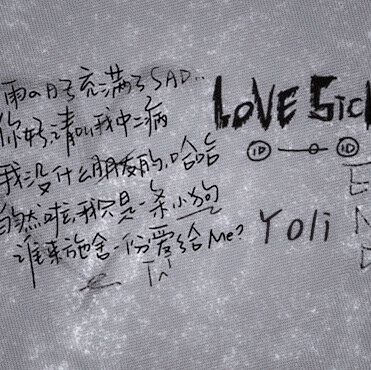 雨の日子充满了SAD..
你好,请叫我中二病
我没什么朋友的,哈哈
当然啦,我只是一条小狗
谁来施舍一份爱给Me?
LOVE Sic
ID ID
Yoli
E
N
D